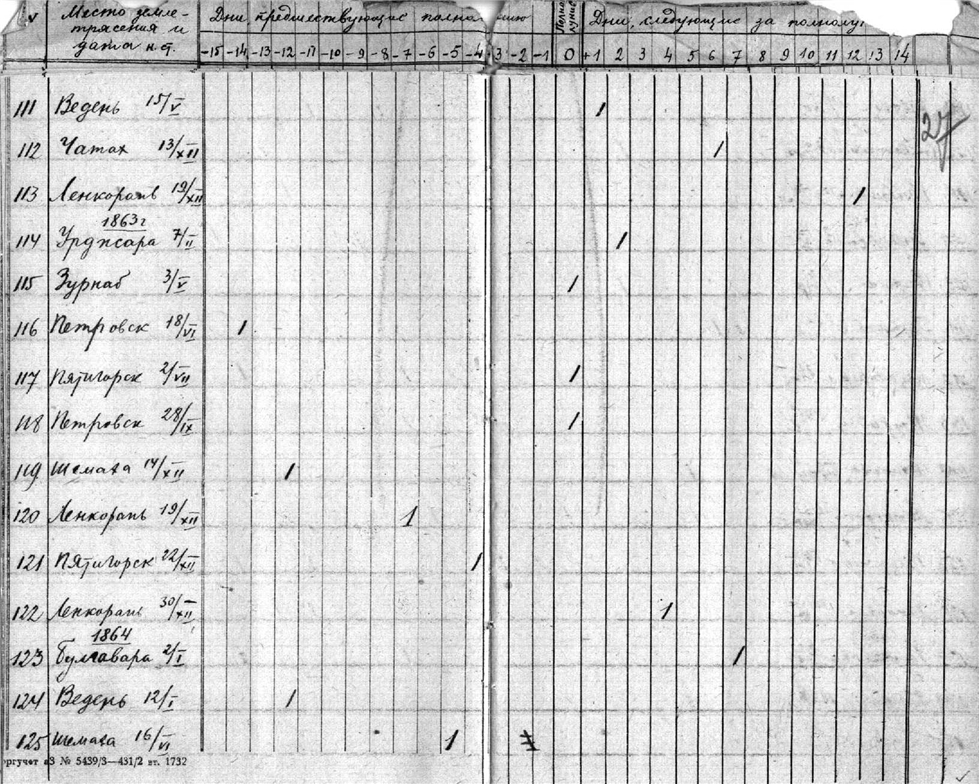 № Место земле- Дни предшествующие полнолунию Полнолуние Дни, следующие за полнолу
трясения и
дата н.ф.
-15 -14 -13 -12 -11 -10 -9 -8 -7 -6 -5 -4 -3 -2 -1 0 +1 2 3 4 5 6 7 8 9 10 11 12 13 14
27
111 Ведень 15/V 1
112 Чатах 13/XII 1
113 Ленкорань 19/XII 1
1863г
114 Урджара 7/II 1
115 Зурнаб 3/V 1
116 Петровск 18/VI 1
117 Пятигорск 2/VII 1
118 Петровск 28/IX 1
119 Шемаха 14/XII 1
120 Ленкорань 19/XII 1
121 Пятигорск 22/XII 1
122 Ленкорань 30/XII 1
1864
123 Булгавара 2/I 1
124 Ведень 12/I 1
125 Шемаха 16/VI 1
ргучет з3 № 5439/3—431/2 вт. 1732